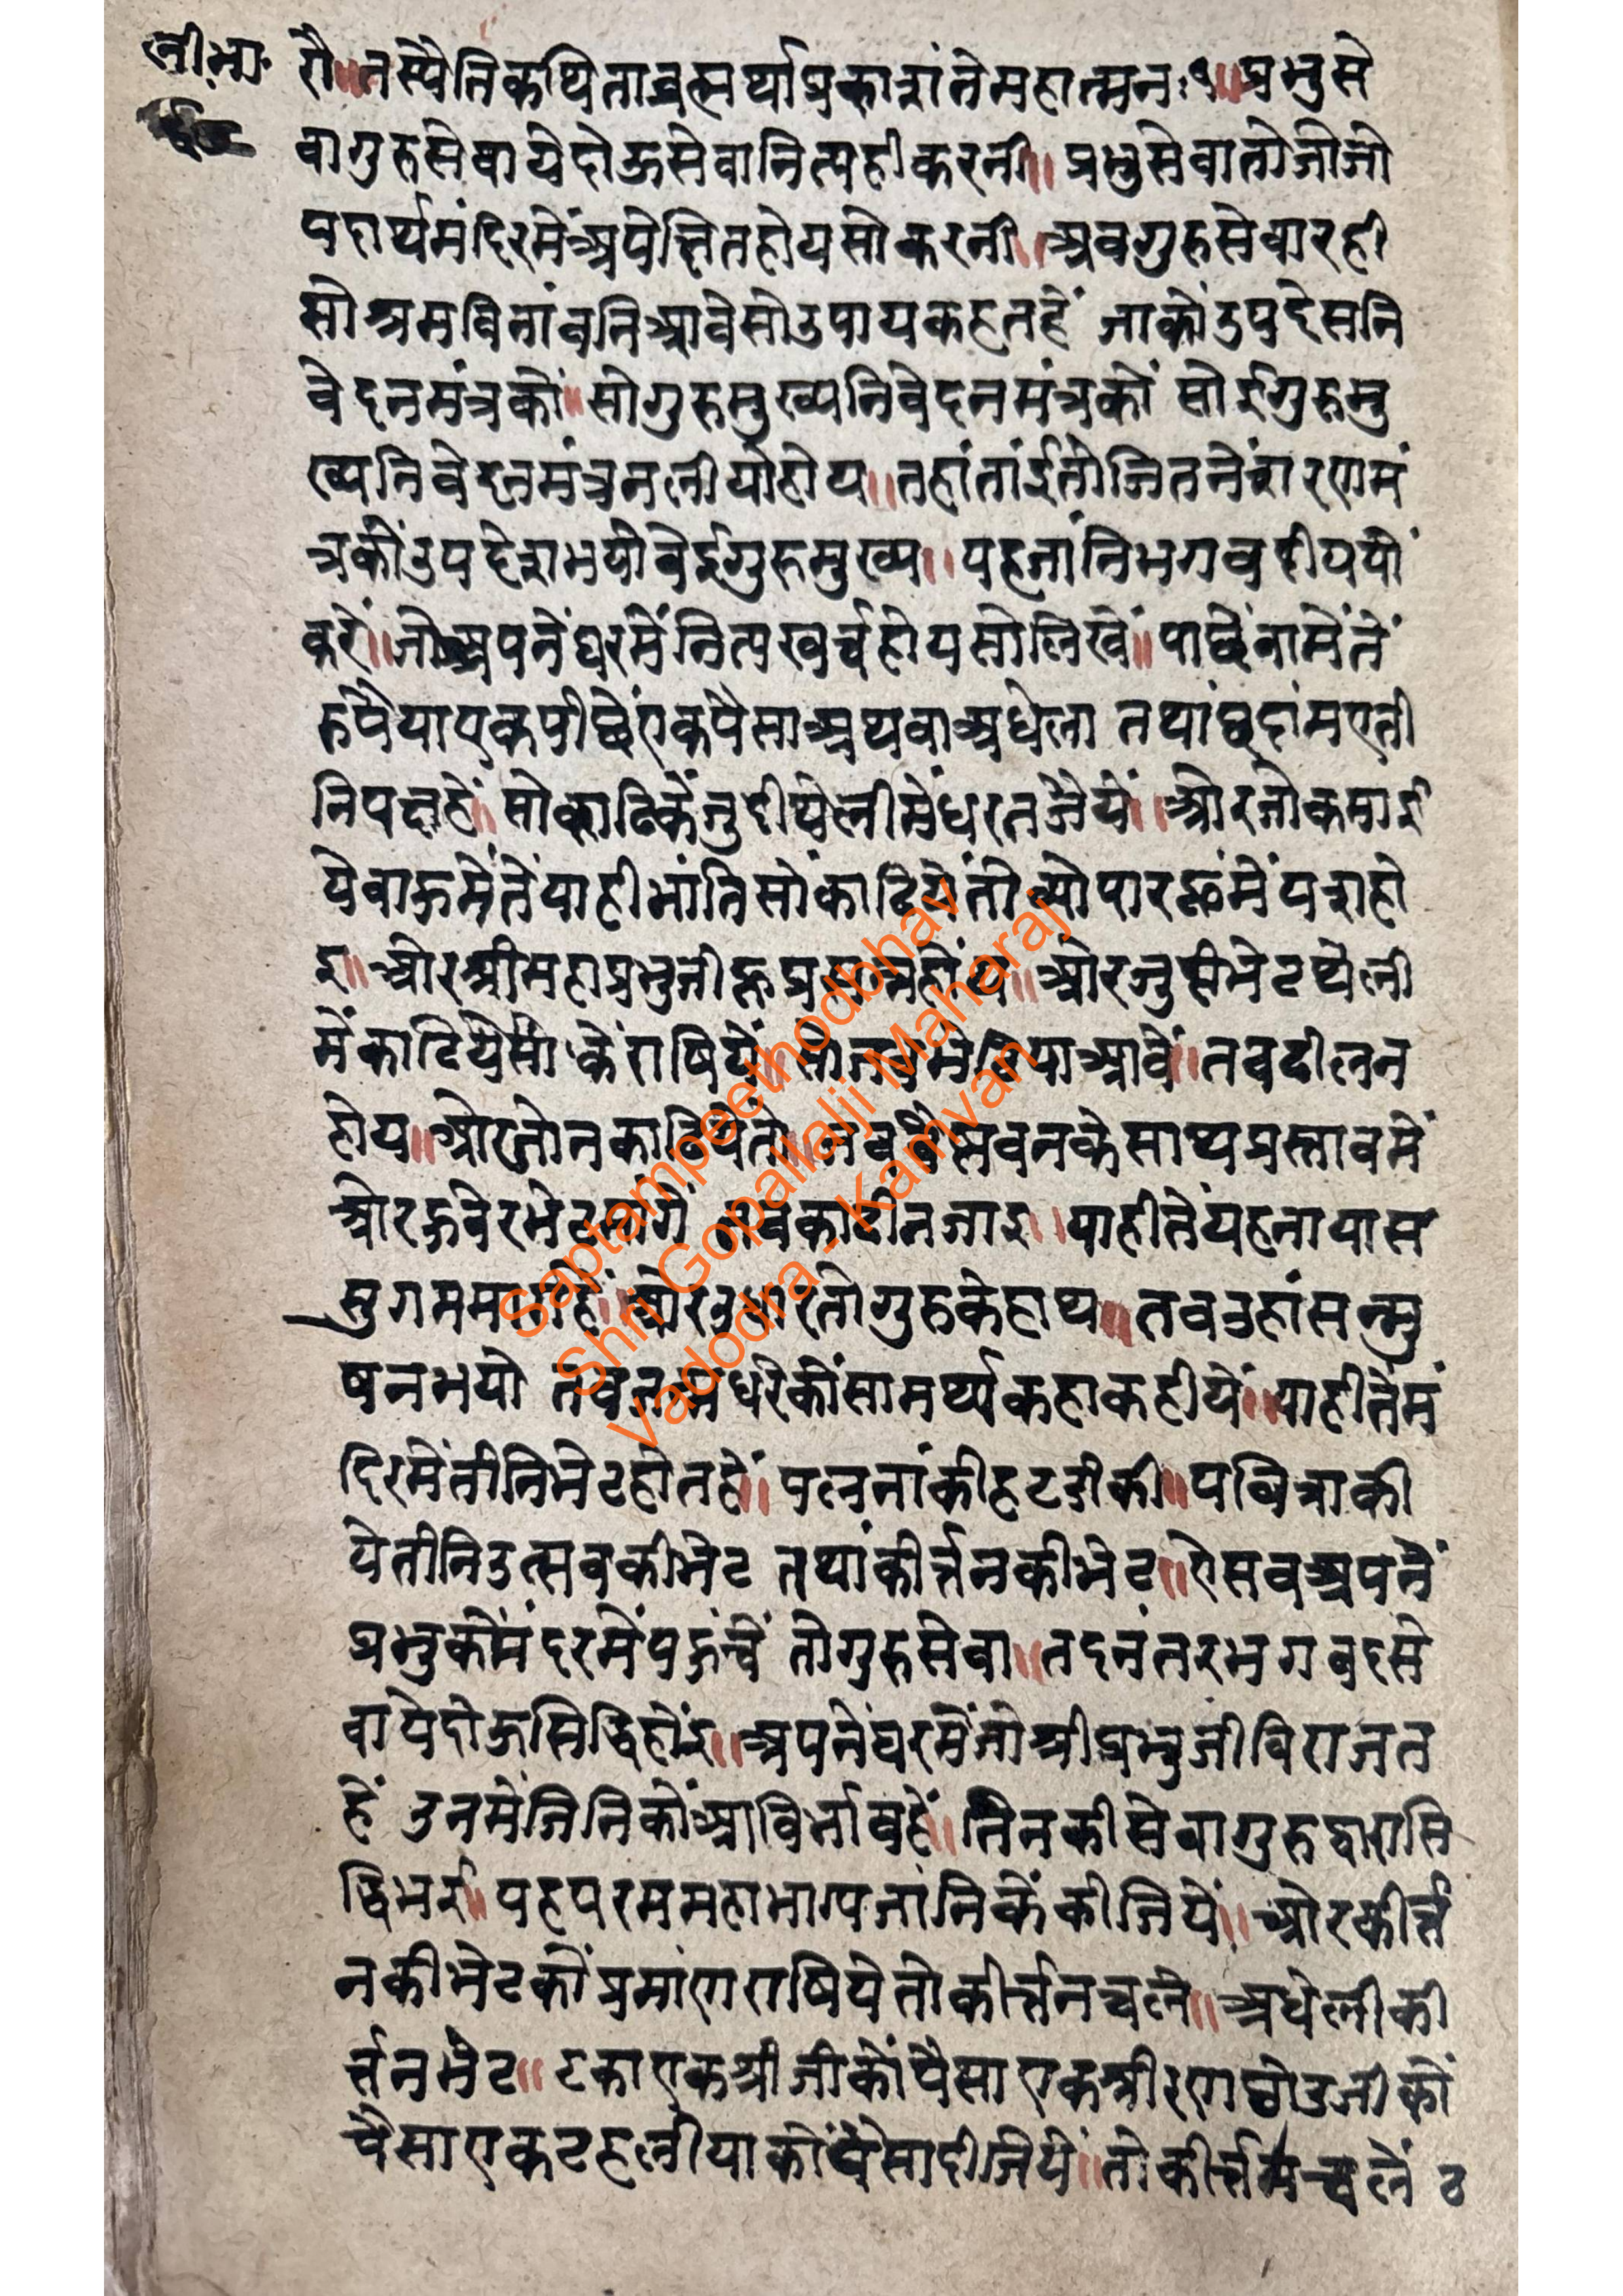 लीभा॰
रौ॥ तस्यैति कथिता व्रत्मर्था प्रकारांते महात्मनः१॥ प्रभुसे
वा गुरुसेवा ये दोऊ सेवा नित्य ही करनी॥ प्रभुसेवा तो जो जो
पदार्थ मंदिरमें अपेक्षित होय सो करनी॥ अब गुरुसेवा रही
सो श्रम बिनां बनि आवे सो उपाय कहत हें जाकों उपदेस नि
वेदन मंत्रकों॥ सो गुरु मुख्य निवेदन मंत्रकों सोई गुरु मु
ख्य निवेदन मंत्र न लीयो होय॥ तहां तांई तो जितनें शरणमं
त्रकों उपदेश भयो वेई गुरु मुख्य॥ यह जांनि भगवदीय यों
करें॥ जो अपनें घरमें नित्य खर्च होय सो लिखें॥ पाछें वामें तें
रुपैया एक पीछें एक पैसा अथवा अधेला तथां छदांम एती
नि पक्ष हें॥ सो काढिकें जुदी थेलीमें धरत जैयें॥ ओर जो कमाई
ये वाऊमें तें याही भांति सों काढियें तो व्योपारहूमें यश हो
इ॥ ओर श्रीमहाप्रभुजी हू प्रसन्न होंय॥ ओर जुदी भेट थेली
में काढि पैसा कें राषियें॥ सो जब भेटिया आवें॥ तब ढील न
होय॥ ओर जो न काढियें तो॥ जब वैष्णवनके साथ प्रस्तावमें
ओर ऊबेर भेट मांगें तब काढी न जाइ॥ याही तें यह नायास
सुगम मार्ग हें॥ ओर उधार तो गुरुके हाथ॥ तब उहां सन्मु
ष न भयो तब जन्म धरेकों सामर्थ्य कहा कहीयें॥ याही तें मं
दिरमें तीनि भेट होत हें॥ पलनांकी हटडीकी॥ पवित्राकी
ये तीनि उत्सवकी भेट तथां कीर्त्तनकी भेट॥ ए सब अपनें
प्रभुकों मंदरमें पऊंचें तो गुरुसेवा॥ तदनंतर भगवदसे
वा ये दोऊ सिद्धि होंइ॥ अपनें घरमें जो श्रीप्रभुजी विराजत
हें उनमें जिनिकों आविर्भाव हें॥ तिनकी सेवा गुरुद्वारा सि
द्धि भई॥ यह परम महाभाग्य जांनिकें कीजियें॥ ओर कीर्त्त
नकी भेटकों प्रमांण राषिये तो कीर्त्तन चले॥ अधेली की
र्त्तन भेट॥ टका एक श्रीजीकों पैसा एक श्रीरणछोडजीकों
पैसा एक टहलीयाकों पैसा दीजियें॥ तो कीर्त्तन चलें ठ
Saptampeethodbhav
Shri Gopallalji Maharaj
Vadodra - Kamvan